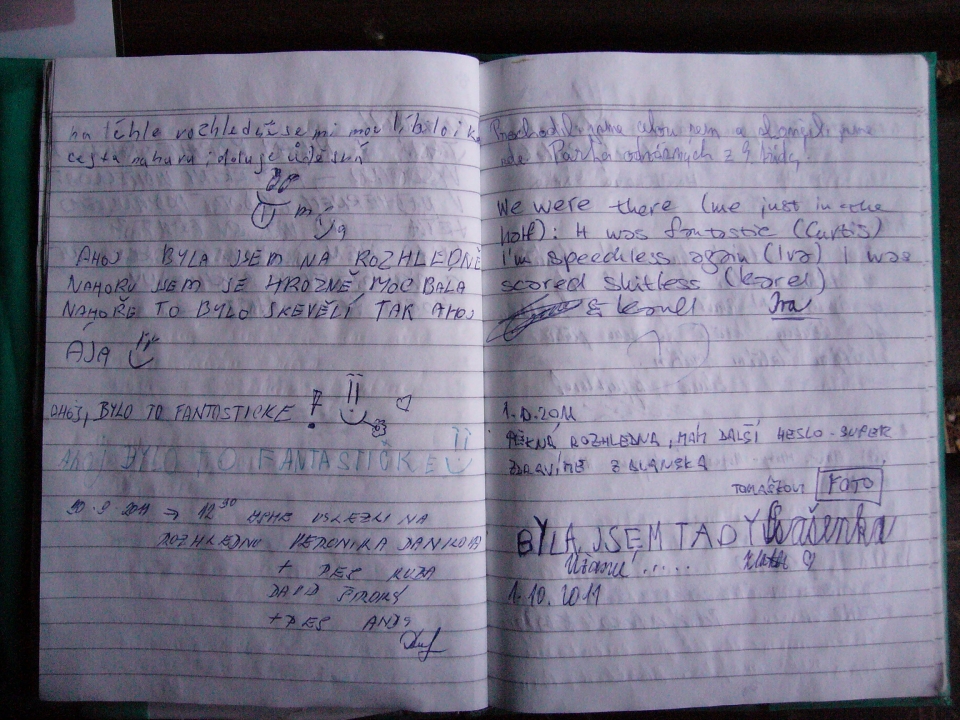 na téhle rozhledně se mi moc líbilo i
cesta nahoru i dolu je úděsná
AHOJ BYLA JSEM NA ROZHLEDNĚ
NAHORU JSEM SE HROZNĚ MOC BÁLA
NAHOŘE TO BYLO SKEVĚLÍ TAK AHOJ
AJA
AHOJ, BYLO TO FANTASTICKE !
AHOJ BYLO TO FANTASTIČKE
30.9.2011 → 12 30 JSME VYLEZLI NA
ROZHLEDNU VERONIKA DANKOVA
+ PES
DAVID ŠIROKÝ
+ PES ANDY
Prochodili jsme celou zem a objevili jsme
zde z 9 třídy.
We were there (me just in the
half): It was fantastic (Curtis)
I'm speechless again (Iva) I was
scared shitless (Karel)
& Iva
1.10.2011
PĚKNÁ ROZHLEDNA, MÁM DALŠÍ HESLO - SUPER
ZDRAVÍME Z BLANSKA
TOMÁŠKOVI FOTO
BYLA JSEM TADY Barašenka
Úžasné .....
1.10.2011